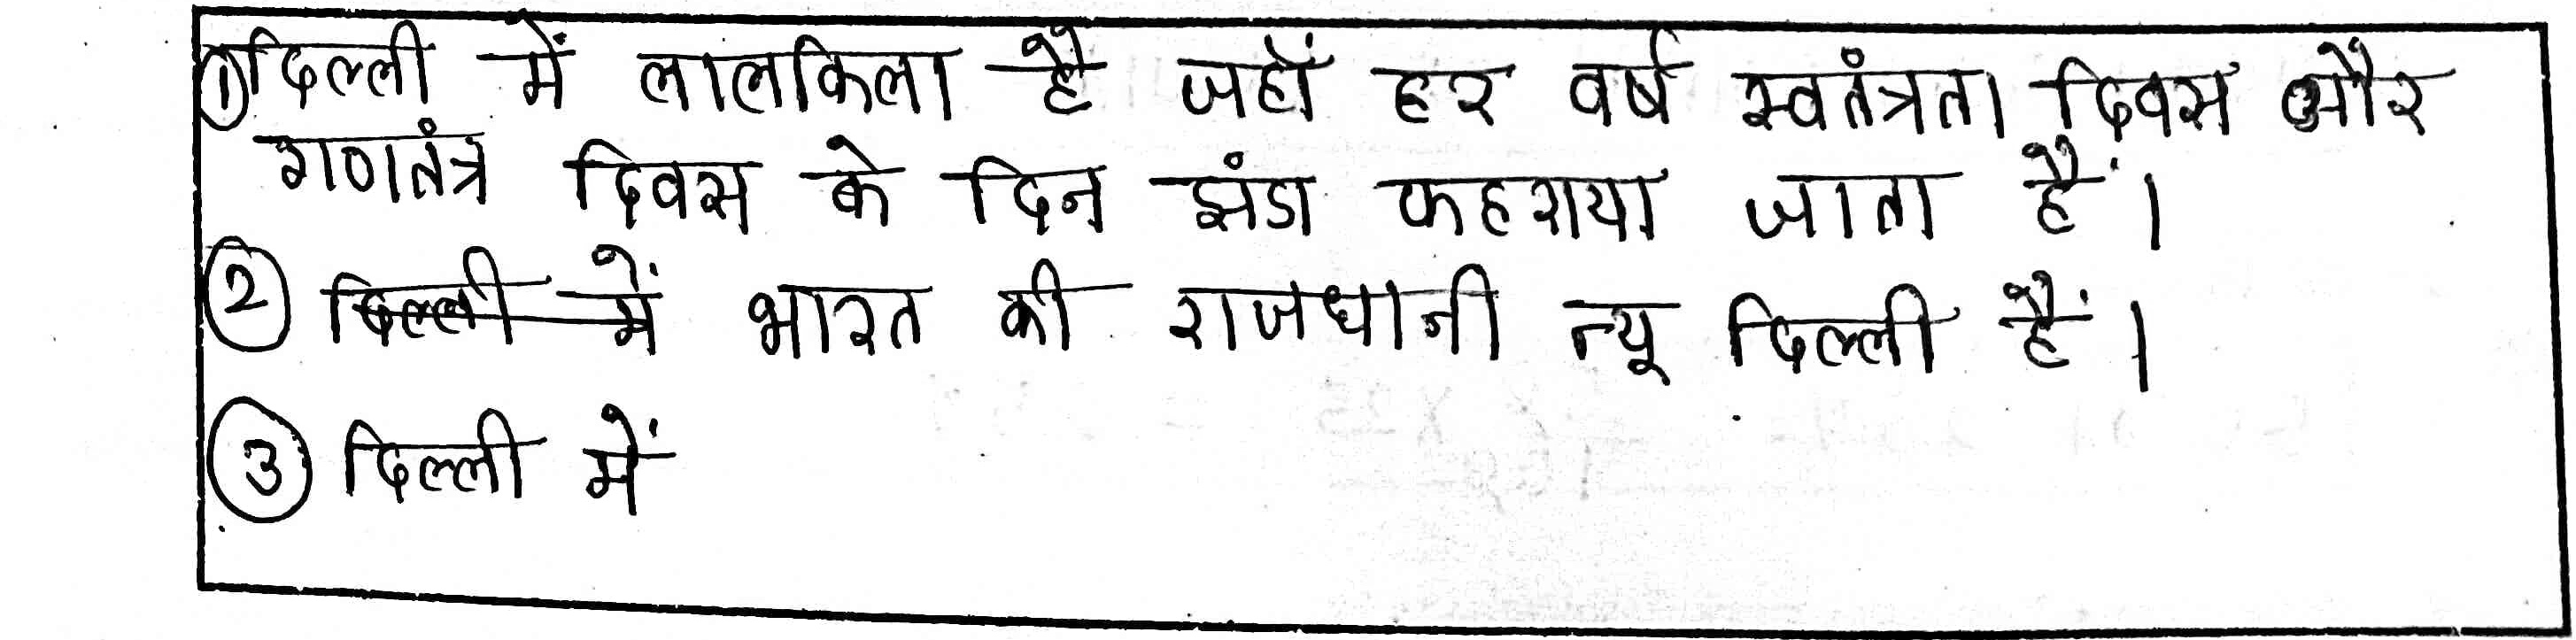 ① दिल्ली में लालकिला है जहाँ हर वर्ष स्वतंत्रता दिवस और
गणतंत्र दिवस के दिन झंडा फहराया जाता हैं।
② दिल्ली में भारत की राजधानी न्यू दिल्ली हैं।
③ दिल्ली में